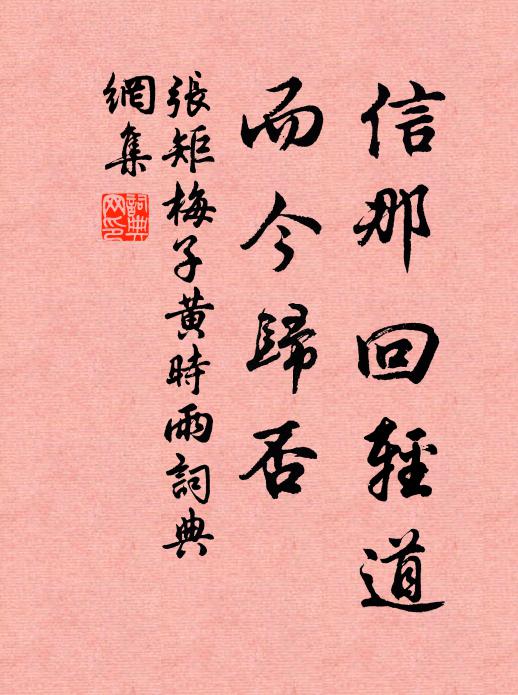 信那回輕道
而今歸否
張矩梅子黃時雨詞典
網集
詞典網印